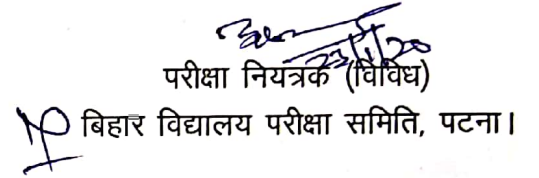 23/1/20
परीक्षा नियत्रक (विविध)
बिहार विद्यालय परीक्षा समिति, पटना।